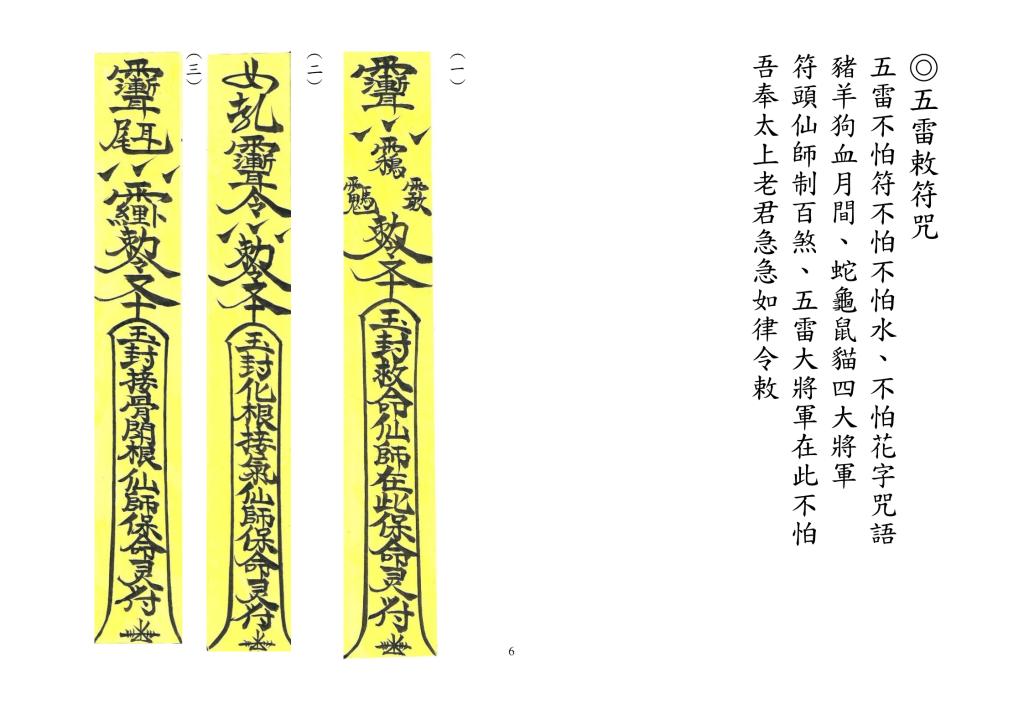 ◎五雷敕符咒
五雷不怕符不怕不怕水、不怕花字咒語
豬羊狗血月間、蛇龜鼠貓四大將軍
符頭仙師制百煞、五雷大將軍在此不怕
吾奉太上老君急急如律令敕
(一)
敕令
玉封救命仙師在此保命灵符
(二)
令
敕令
玉封化根接氣仙師保命灵符
(三)
敕令
玉封接骨開根仙師保命灵符
6